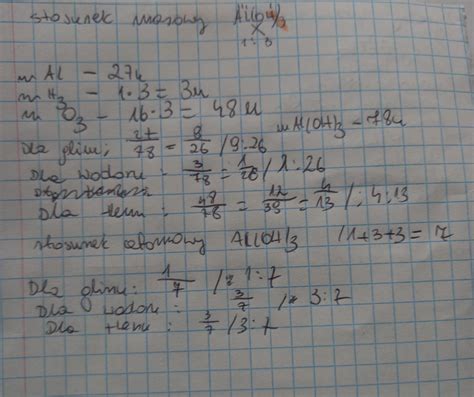 stosunek masowy Al(OH)3
1:3
m Al – 27u
m H3 – 1·3 = 3u
m O3 – 16·3 = 48u
m Al(OH)3 – 78u
Dla glinu: 27/78 = 9/26 / 9:26
Dla wodoru: 3/78 = 1/26 / 1:26
Dla tlenu: 48/78 = 12/39 = 4/13 / 4:13
stosunek atomowy Al(OH)3 /1+3+3 = 7
Dla glinu: 1/7 / 1:7
Dla wodoru: 3/7 / 3:7
Dla tlenu: 3/7 / 3:7